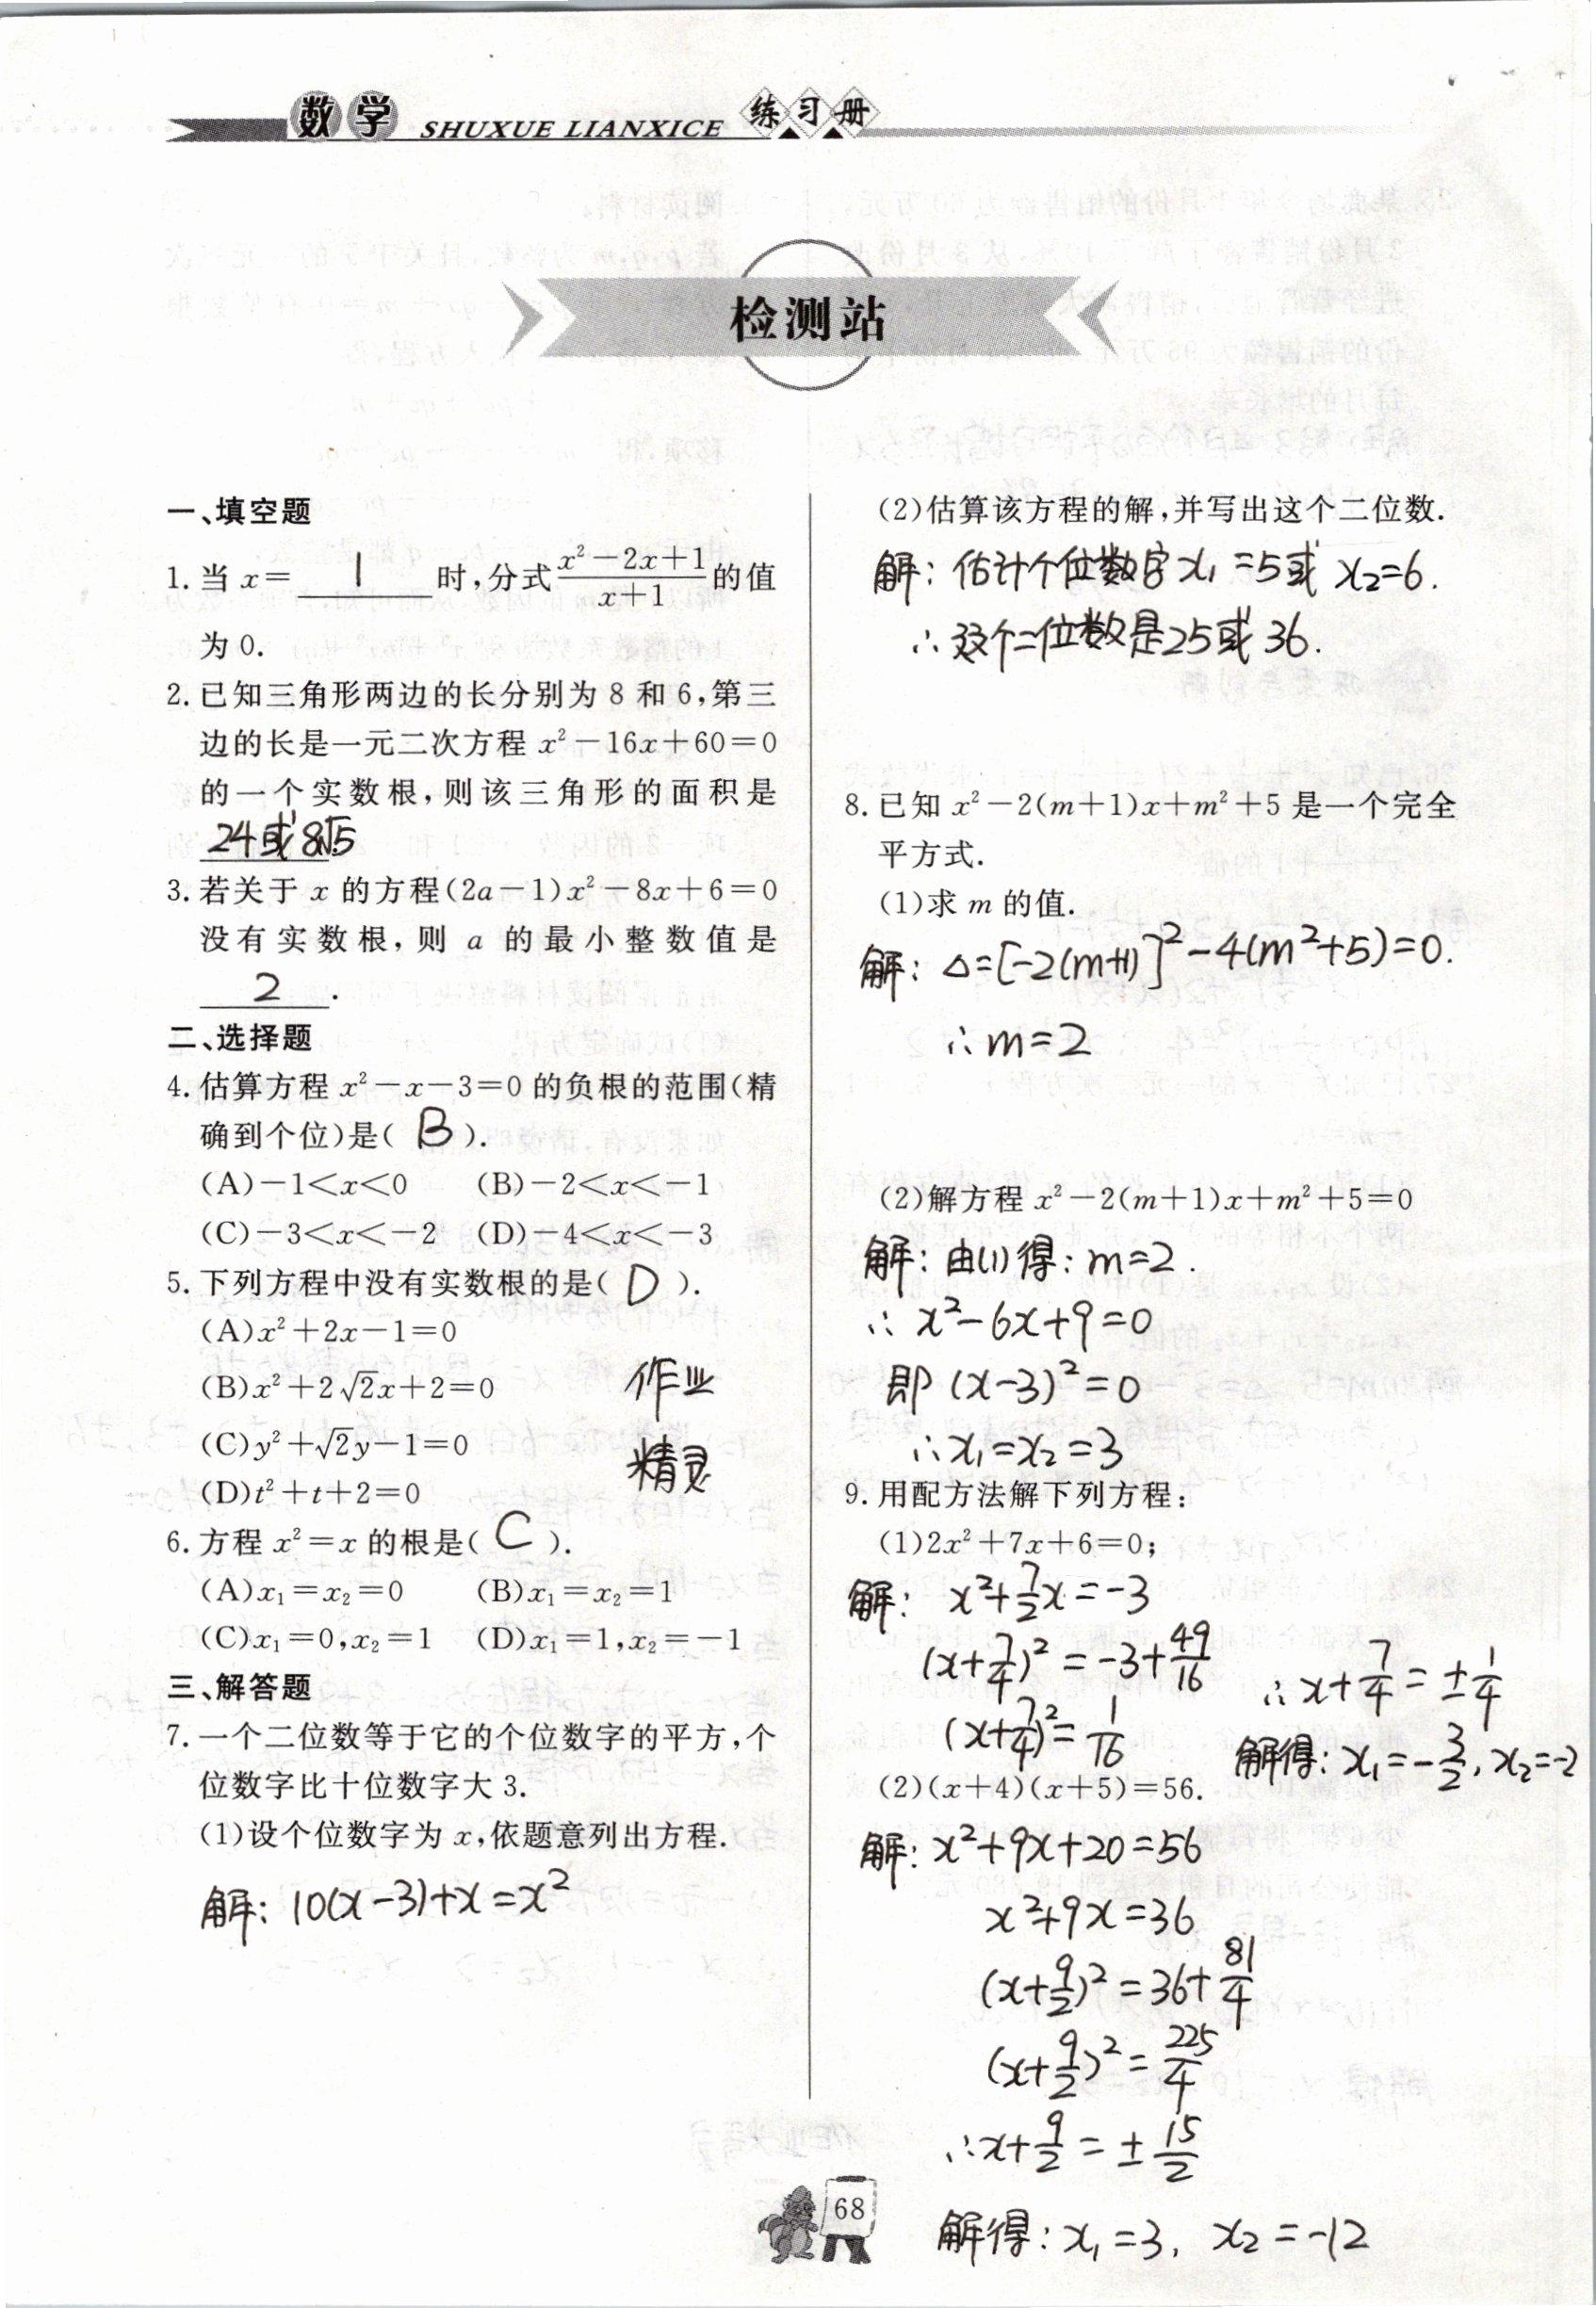 数学 SHUXUE LIANXICE 练习册
检测站
一、填空题
1. 当 x= 1 时,分式 (x²-2x+1)/(x+1) 的值
为 0.
2. 已知三角形两边的长分别为 8 和 6,第三
边的长是一元二次方程 x²-16x+60=0
的一个实数根,则该三角形的面积是
24或8√5.
3. 若关于 x 的方程(2a-1)x²-8x+6=0
没有实数根,则 a 的最小整数值是
2 .
二、选择题
4. 估算方程 x²-x-3=0 的负根的范围(精
确到个位)是( B ).
(A)-1<x<0 (B)-2<x<-1
(C)-3<x<-2 (D)-4<x<-3
5. 下列方程中没有实数根的是( D ).
(A)x²+2x-1=0
(B)x²+2√2x+2=0
作业
(C)y²+√2y-1=0
精灵
(D)t²+t+2=0
6. 方程 x²=x 的根是( C ).
(A)x₁=x₂=0 (B)x₁=x₂=1
(C)x₁=0,x₂=1 (D)x₁=1,x₂=-1
三、解答题
7. 一个二位数等于它的个位数字的平方,个
位数字比十位数字大 3.
(1)设个位数字为 x,依题意列出方程.
解: 10(x-3)+x=x²
(2)估算该方程的解,并写出这个二位数.
解: 估计个位数字 x₁=5或 x₂=6.
∴这个二位数是25或36.
8. 已知 x²-2(m+1)x+m²+5 是一个完全
平方式.
(1)求 m 的值.
解: △=[-2(m+1)]²-4(m²+5)=0.
∴m=2
(2)解方程 x²-2(m+1)x+m²+5=0
解: 由(1)得: m=2.
∴ x²-6x+9=0
即 (x-3)²=0
∴x₁=x₂=3
9. 用配方法解下列方程:
(1)2x²+7x+6=0;
解: x²+7/2x=-3
(x+7/4)²=-3+49/16
(x+7/4)²=1/16
∴x+7/4=±1/4
解得: x₁=-3/2, x₂=-2
(2)(x+4)(x+5)=56.
解: x²+9x+20=56
x²+9x=36
(x+9/2)²=36+81/4
(x+9/2)²=225/4
∴x+9/2=±15/2
解得: x₁=3, x₂=-12
68